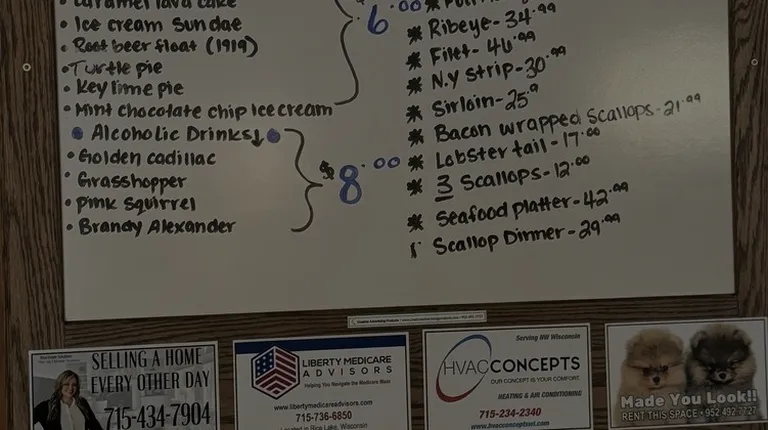 Caramel lava cake
• Ice cream Sundae
• Root beer float (1919)
• Turtle pie
• Key lime pie
• Mint chocolate chip Ice cream
6.00
• Alcoholic Drinks↓ •
• Golden cadillac
• Grasshopper
• Pink Squirrel
• Brandy Alexander
$8.00
* Ribeye - 34.99
* Filet - 46.99
* N.Y Strip - 30.99
* Sirloin - 25.9
* Bacon wrapped Scallops - 21.99
* Lobster tail - 17.00
* 3 Scallops - 12.00
* Seafood Platter - 42.99
Scallop Dinner - 29.99
SELLING A HOME
EVERY OTHER DAY
715-434-7904
LIBERTY MEDICARE
ADVISORS
Helping You Navigate the Medicare Maze
www.libertymedicareadvisors.com
715-736-6850
Located in Rice Lake, Wisconsin
Serving NW Wisconsin
HVACCONCEPTS
OUR CONCEPT IS YOUR COMFORT
HEATING & AIR CONDITIONING
715-234-2340
www.hvacconceptsnel.com
Made You Look!!
RENT THIS SPACE • 952.492.7727